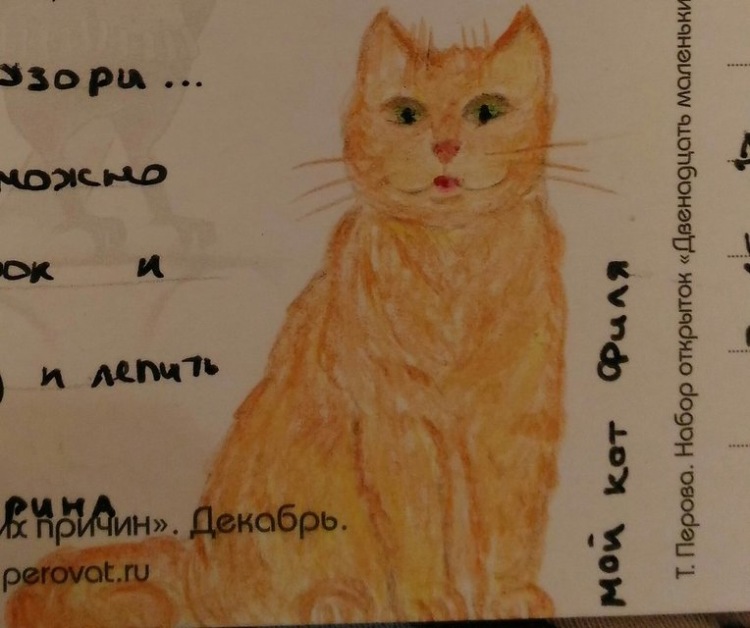 узори...
можно
ок и
и лепить
рина
их причин». Декабрь.
perovat.ru
мой кот Филя
Т. Перова. Набор открыток «Двенадцать маленьки